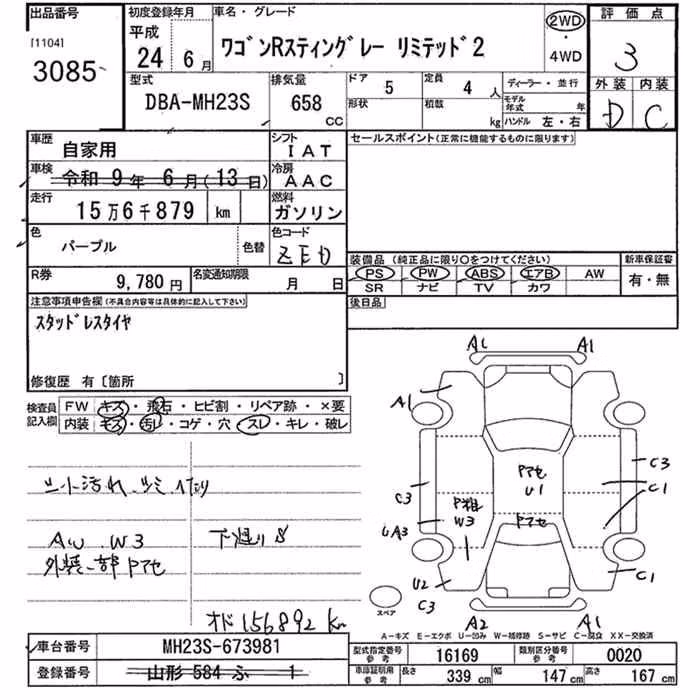 出品番号
[1104]
3085
初度登録年月
平成
24 6月
車名・グレード
ワゴンRスティングレー リミテッド2
2WD
・
4WD
評価点
3
外装 内装
D C
型式
DBA-MH23S
排気量
658
CC
ドア
5
定員
4人
形状
積載
kg
ディーラー・並行
モデル年式 年
ハンドル 左・右
車歴
自家用
シフト
IAT
車検
令和 9年 6月(13日)
冷房
AAC
走行
15万6千879 km
燃料
ガソリン
色
パープル
色替
色コード
ZED
R券
9,780円
名変通知期限
月 日
セールスポイント(正常に機能するものに限ります)
装備品(純正品に限り○をつけてください)
新車保証書
PS PW ABS エアB AW
SR ナビ TV カワ
有・無
後日品
注意事項申告欄(不具合内容等は具体的に記入して下さい)
スタッドレスタイヤ
修復歴 有〔箇所 〕
検査員
記入欄
FW キズ・飛石・ヒビ割・リペア跡・×要
内装 キズ・汚レ・コゲ・穴・スレ・キレ・破レ
AW W3
下廻りS
外装一部Pアセ
オド156892km
A1 A1
A1
C3
C1
C3
UA3
Pアセ
U1
P雑
W3
Pアセ
U2
C3
C1
A2 A1
スペア
A-キズ E-エクボ U-凹み W-補修跡 S-サビ C-腐食 XX-交換済
車台番号
MH23S-673981
登録番号
山形 584 ふ 1
型式指定番号
参考
16169
類別区分番号
参考
0020
車庫証明用
参考
長さ
339 cm
幅
147 cm
高さ
167 cm